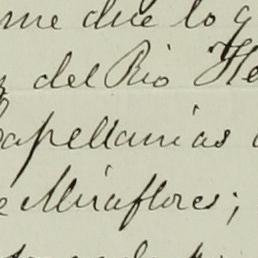 me que lo q
del Rio He
Capellanias
e Miraflores;